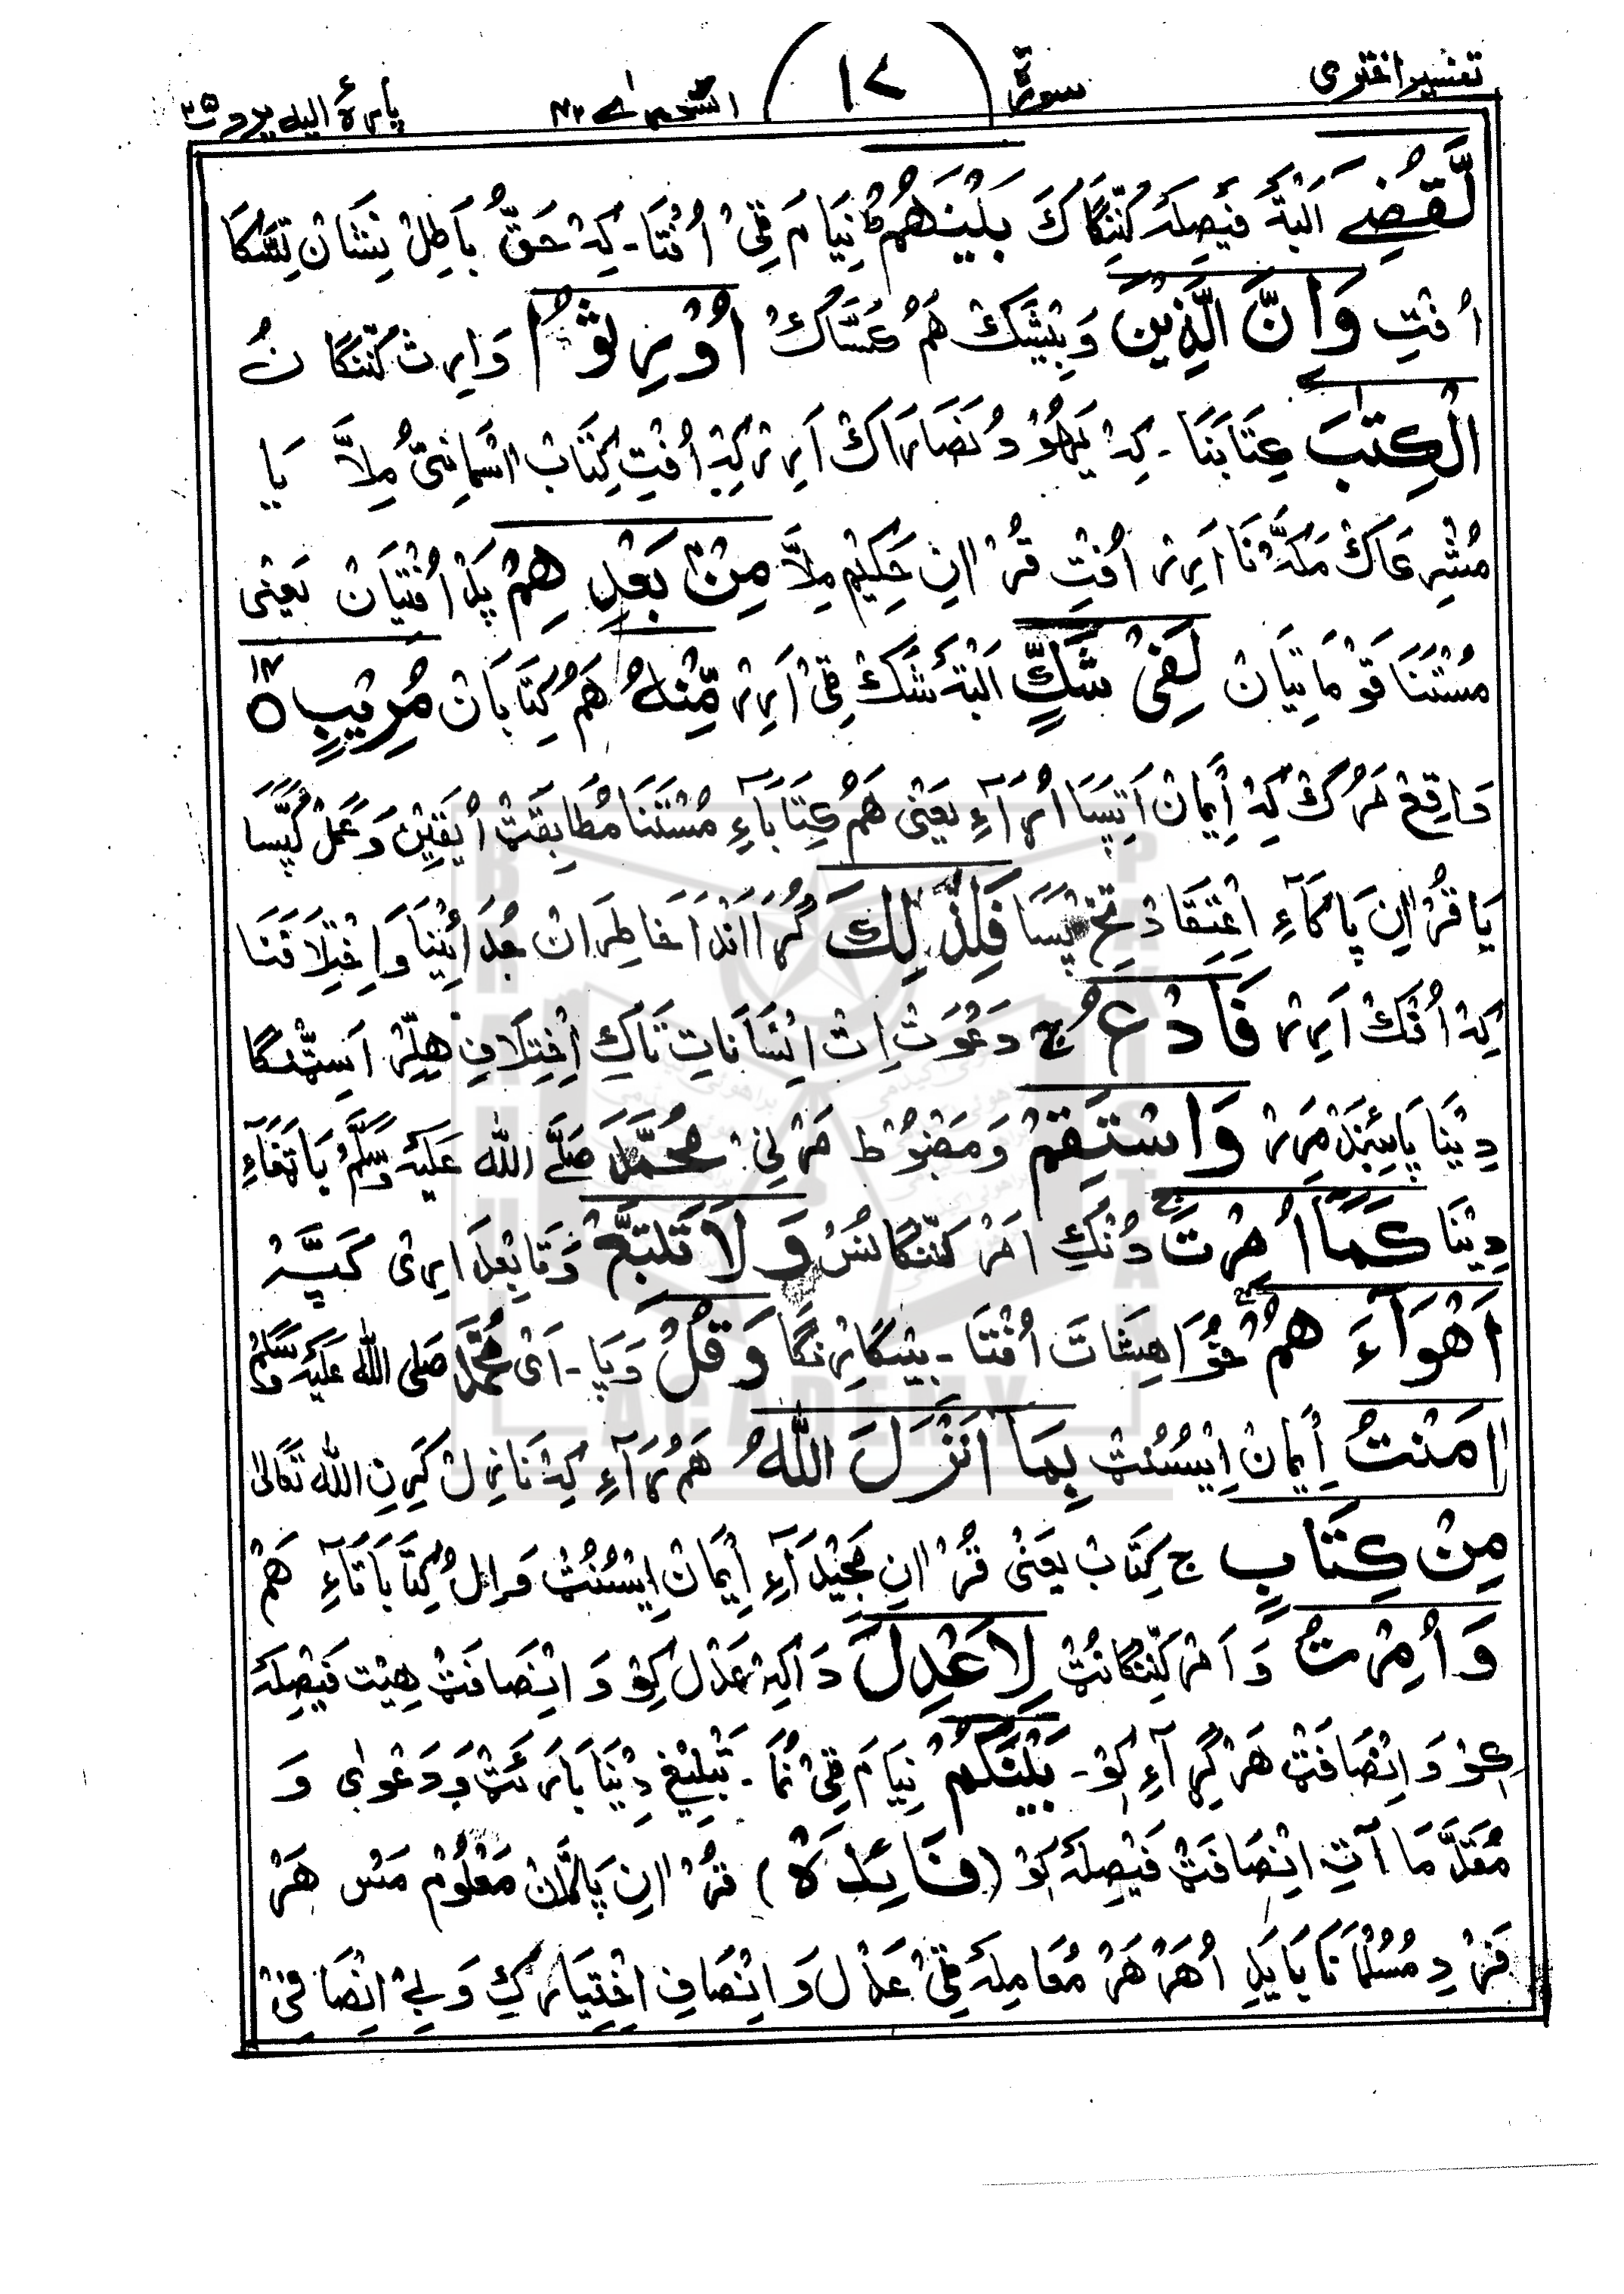 تفسیر اختری سورۃ ۱۷ الشوریٰ ۴۲ پارہ الیہ یرد ۲۵
لَّقُضِیَ اَلبَتَّہ فَیصِلَہ کَنِّنگَاکَ بَیْنَہُمْ ط نِیَام قِیْ اُفتَا۔ کِہ حَقُّ بَاطِلْ نِشَان تِنِنگَا
اُفتِ وَاِنَّ الَّذِیْنَ وَبِیشَکْ ہَمُ کَسَّاکْ اُوْرِثُوا وَارِث کَنِّنگَا نُ
الْکِتٰبَ کِتَابَنَا۔ کِہ یَہُوْدُ نَصَارَاکْ اَرِرْ کِہ اُفتِ کِتَاب اٰسْمَانِیْ مِلاَّ یَا
مُشْرِکَاکْ مَکَّہْ نَا اَرِرْ اُفتِ قُرْاٰنِ حَکِیْم مِلاَّ مِنْۢ بَعْدِ ہِمْ پَدْ اُفْتِیَانْ یَعْنِی
مُسْتَنَا قَوْمَا تِیَانْ لَفِیْ شَکٍّ اَلبَتَّہ شَکْ قِیْ اَرِرْ مِّنْہُ ہَمُ کِتَابَانْ مُرِیْبٍ ۝ ۱۴
وَاقِعْ مَرُکْ کِہْ اِیمَانْ اَتِپَسَا اُرَآءِ یَعْنِی ہَمُ کِتَابَآءِ مُسْتَنَا مُطَابِقَتْ اُ یَقِیْن وَعَمَلْ کَپَّسَا
یَا قُرْاٰنِ پَاکَآءِ اِعْتِقَادْ تِخ پَسَا فَلِذٰلِکَ گُڑَا اَنْدَا خَاطِرَانْ جُدَائِیْنَا وَاِخْتِلَافَنَا
کِہْ اُفْکْ اَرِرْ فَادْعُ ج دَعْوَتْ اِتْ اِنْسَانَاتِ تَاکِ اِخْتِلَافِ ہِلِّرْ اَسِتْنَگَا
دِیْنَا پَابَنْد مَرِرْ وَاسْتَقِمْ وَمَضْبُوْط مَرْ نِیْ مُحَمَّد صَلَّی اللّٰہ عَلَیْہِ وَسَلَّمْ
دِیْنَا کَمَآ اُمِرْتَ ج دُنْکِ اَمْر کَنِّنگَانُسْ وَلَا تَتَّبِعْ وَتَابِعْدَارِیْ کَپَّہ
اَہْوَآءَ ہُمْ خُوَاہِشَاتَ اُفْتَا۔ وَقُلْ وَپَا۔ اَیْ مُحَمَّد صَلی اللّٰہ عَلَیْہ وَسَلَّمْ
اٰمَنْتُ اِیْمَانْ اِیْسُنُٹْ بِمَا اَنْزَلَ اللّٰہُ ہَمُ ڑَآءِ کِہْ نَازِلْ کَرِنِ اللّٰہ تَعَالٰی
مِنْ کِتَابٍ ج کِتَابْ یَعْنِی قُرْاٰنِ مَجِیْدَآءِ اِیْمَانْ اِیْسُنُٹْ وَاِلُ کِتَابَاتَآءِ ہَمْ
وَ اُمِرْتُ وَ اَمْر کَنِّنگَانُٹ لِاَعْدِلَ دَاکِہْ عَدْل کِوْ وَ اِنْصَافَتْ ہِیْت فَیْصِلَہْ
کِوْ وَ اِنْصَافَتْ ہَرْ گِڑَآءِ کِوْ۔ بَیْنَکُمْ نِیَام قِیْ نُمَا۔ تَبْلِیْغِ دِیْنَا بَارَئَتْ وَدَعْوٰی وَ
مُقَدَّمَا آتِ اِنْصَافَتْ فَیْصِلَہْ کِوْ (فَائِدَہ) قُرْاٰنِ پَاکَانْ مَعْلُوْم مَسْ ہَرْ
فَرْدِ مُسُلْمَانَا بَایَدِ اُ ہَرْ ہَرْ مُعَامِلَہْ قِیْ عَدْل وَ اِنْصَافِ اِخْتِیَارکِ وَ بِیْ اِنْصَافِیْ